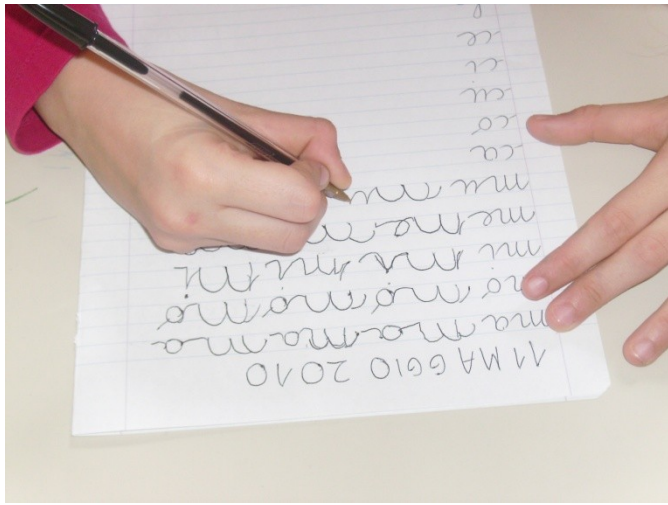 11 MAGGIO 2010
ma ma ma ma
mo mo mo mo
mi mi mi mi
me me
mu mu
ca
co
cu
ci
ce